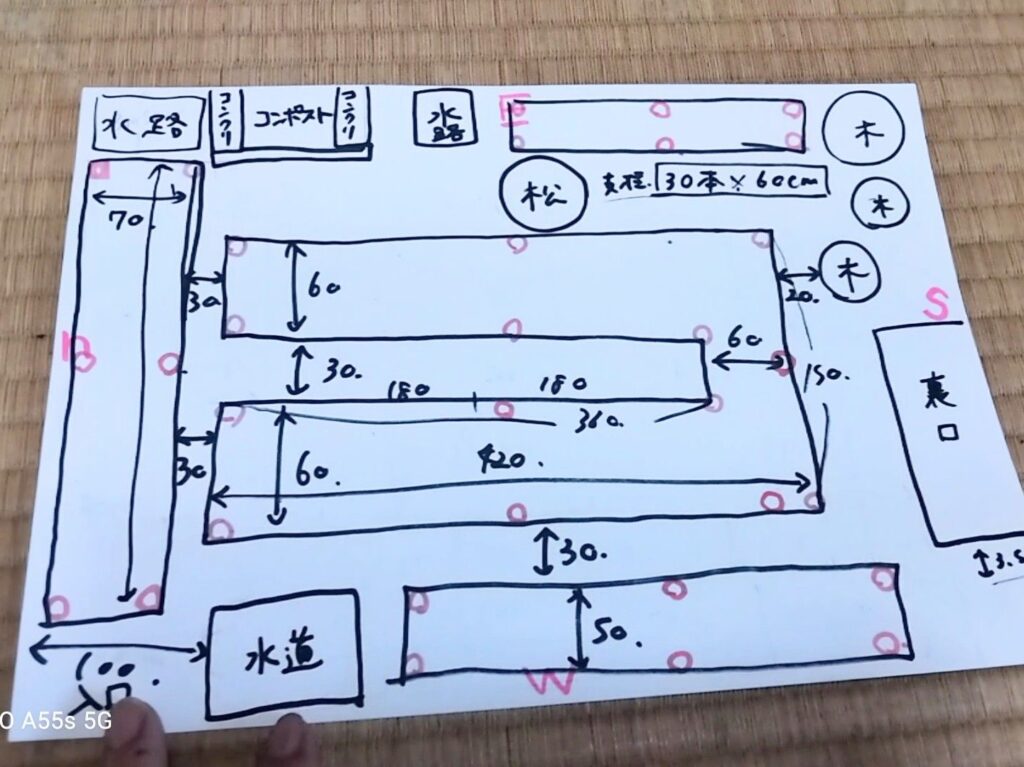 水路
コンクリ
コンポスト
コンクリ
水路
E
木
松
支柱.
30本×60cm
木
70
60
木
30
20.
S
N
30.
60
150.
裏口
180
180
360.
30
60.
420.
30.
3.5
50.
100.
入口
水道
W
A55s 5G